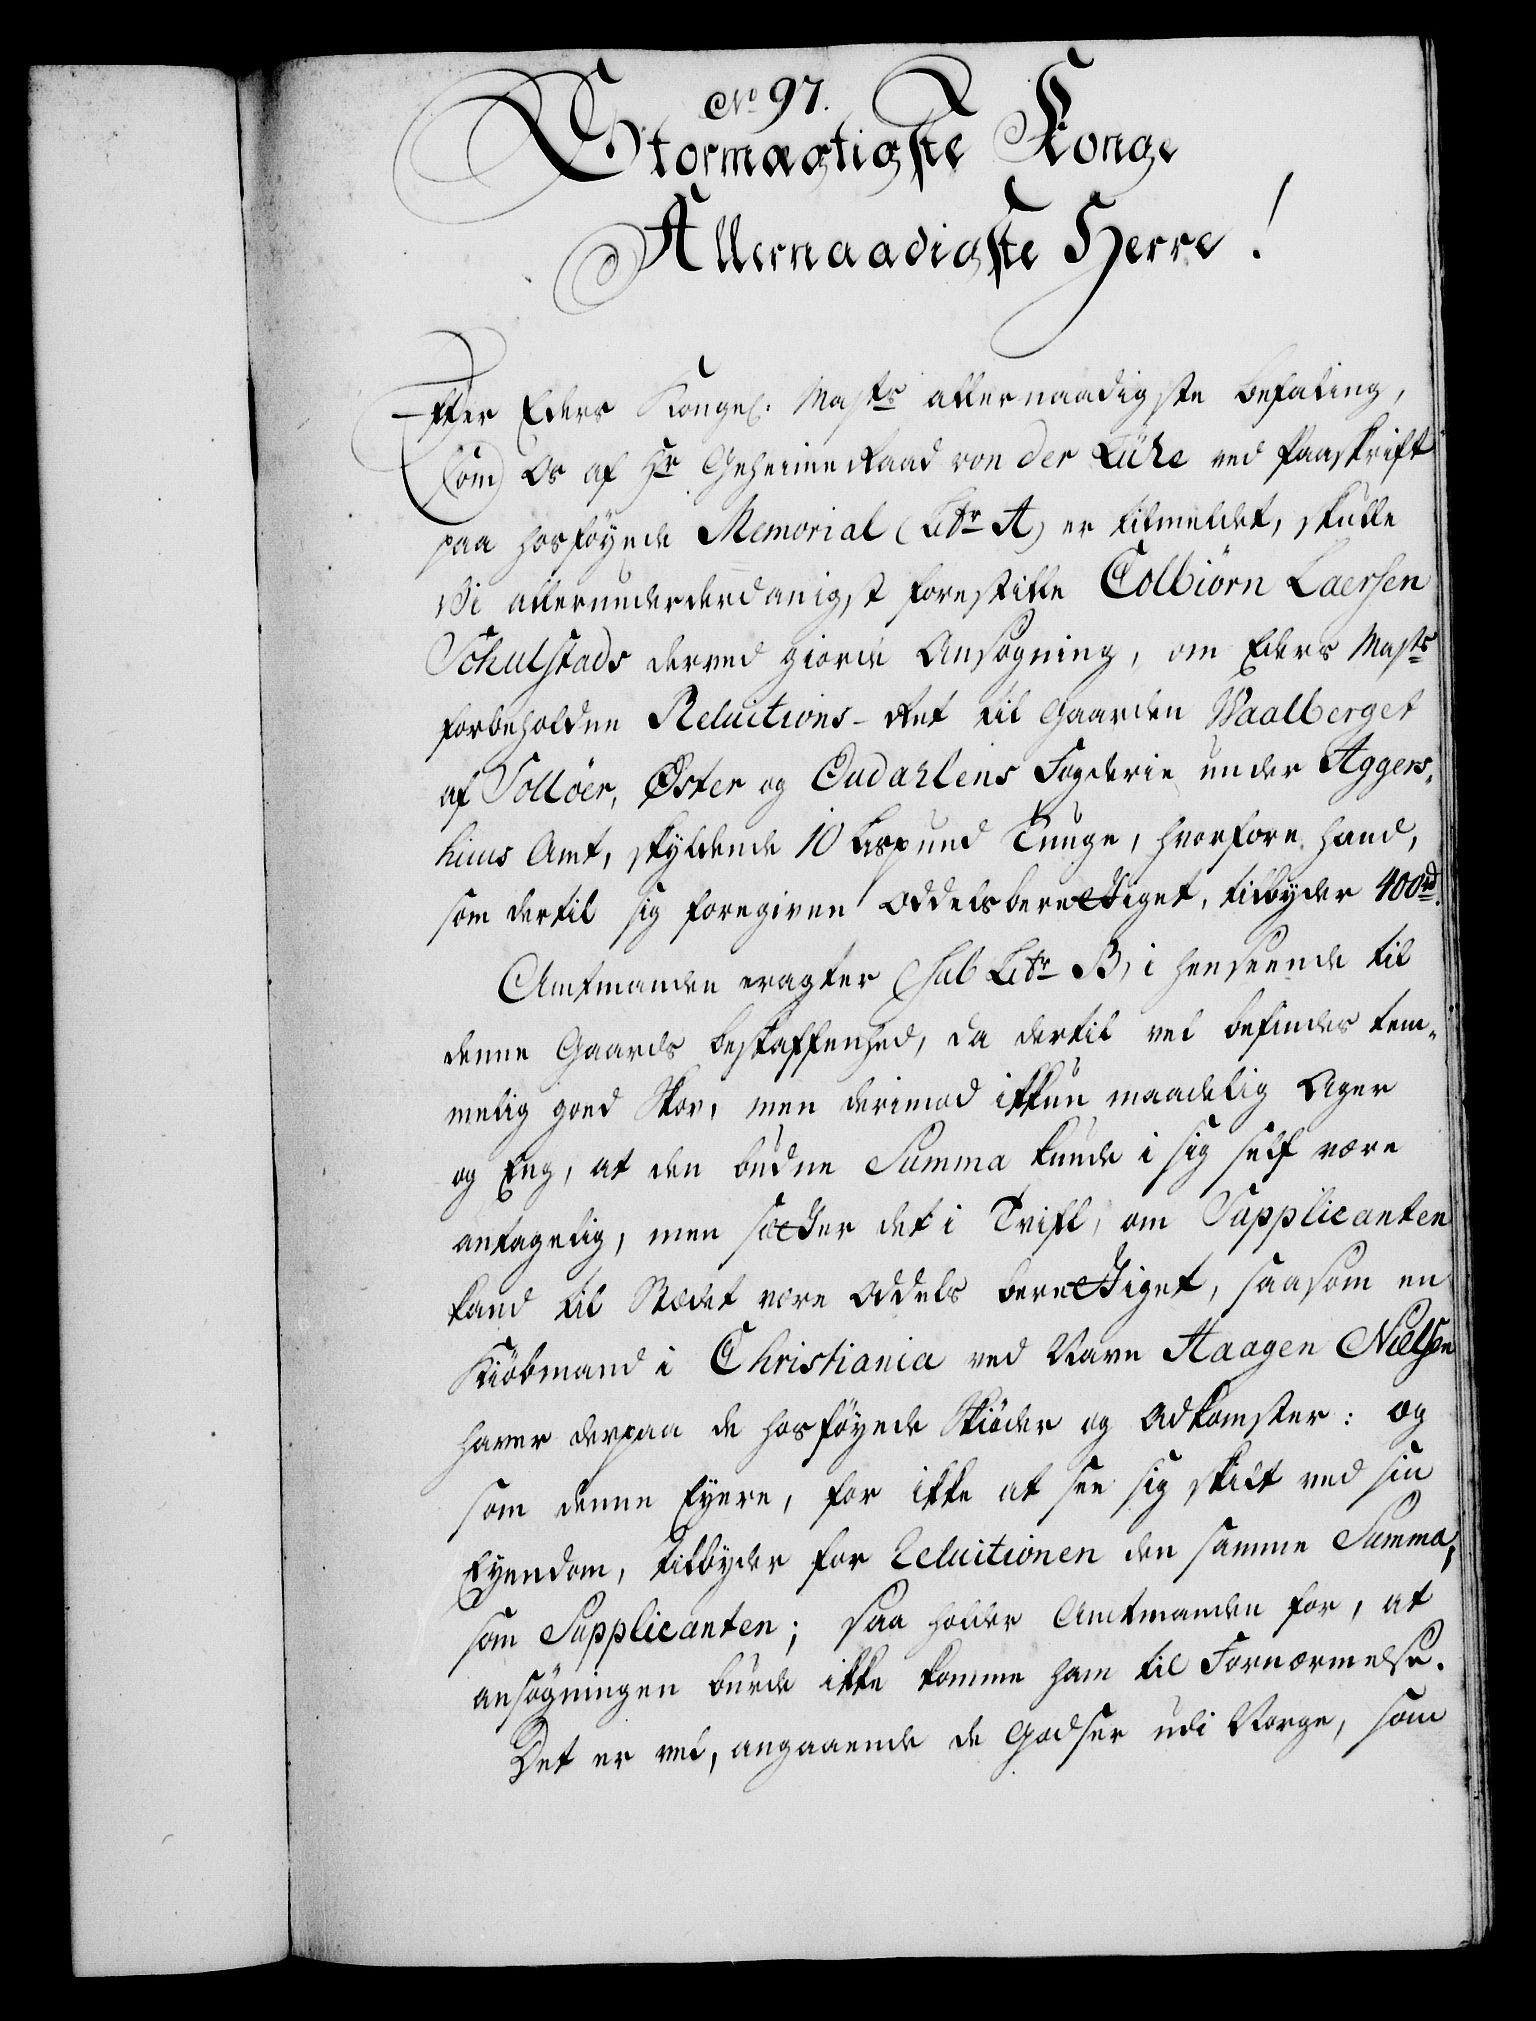 No 97.
Stormægtigste Konge
Allernaadigste Herre!
Efter Eders Kongel. Majts allernaadigste Befaling,
som Os af Hr Geheime Raad von der Lühe ved Paaskrift
paa hosföyede Memorial (Litr A) er tilmeldet, skulle
Vi allerunderderdanigst forestille Colbiörn Laersen
Schulstads derved giorde Ansögning, om Eders Majts
forbeholdne Reluitions-Ret til Gaarden Waalberget
af Sollöer, Öster og Oudahlens Fogderie under Aggers,
huus Amt, skyldende 10 Lispund Tunge, hvorfore hand,
som dertil sig foregiven Oddelsberettiget, tilbyder 400rd.
Amtmanden eragter (sub Litr B, i henseende til
denne Gaards beskaffenhed, da dertil vel befindes tem-
melig goed Skov, men derimod ikkun maadelig Ager
og Eng, at den budne Summa kunde i sig self være
antagelig, men sætter det i Tvifl, om Supplicanten
kand til Stædet være Oddels berettiget, saasom en
Kiöbmand i Christiania ved Navn Haagen Nielsen
haver derpaa de hosföyede Skiöder og Adkomster: og
som denne Eyere, for ikke at see sig skilt ved sin
Eyendom, tilbyder for Reluitionen den samme Summa,
som Supplicanten; saa holder Amtmanden for, at
ansögningen burde ikke komme ham til Fornærmelse.
Det er vel, angaaende de Godser udi Norge, som